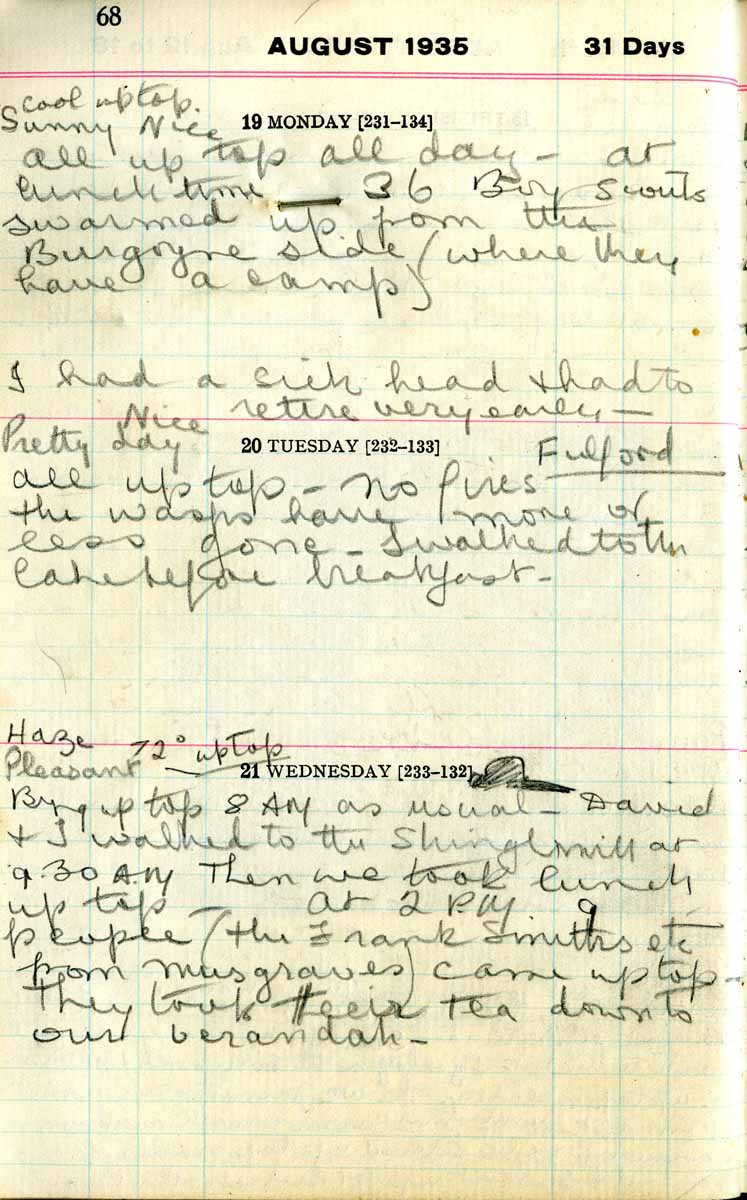 68
AUGUST 1935 31 Days
cool up top.
Sunny Nice
19 MONDAY [231–134]
all up top all day – at
lunch time — 36 Boy Scouts
swarmed up from the
Burgoyne side (where they
have a camp)
I had a sick head & had to
retire very early —
Nice
Pretty day
20 TUESDAY [232–133]
Fulford
all up top – no fires
the wasps have more or
less gone – I walked to the
Lake before breakfast –
Haze 72° up top
Pleasant
21 WEDNESDAY [233–132]
up top 8 AM as usual – David
& I walked to the Shinglemill at
9.30 AM Then we took lunch
up top – At 2 PM 9
people (the Frank Smiths etc
from Musgraves) came up top –
They took their tea down to
our verandah –